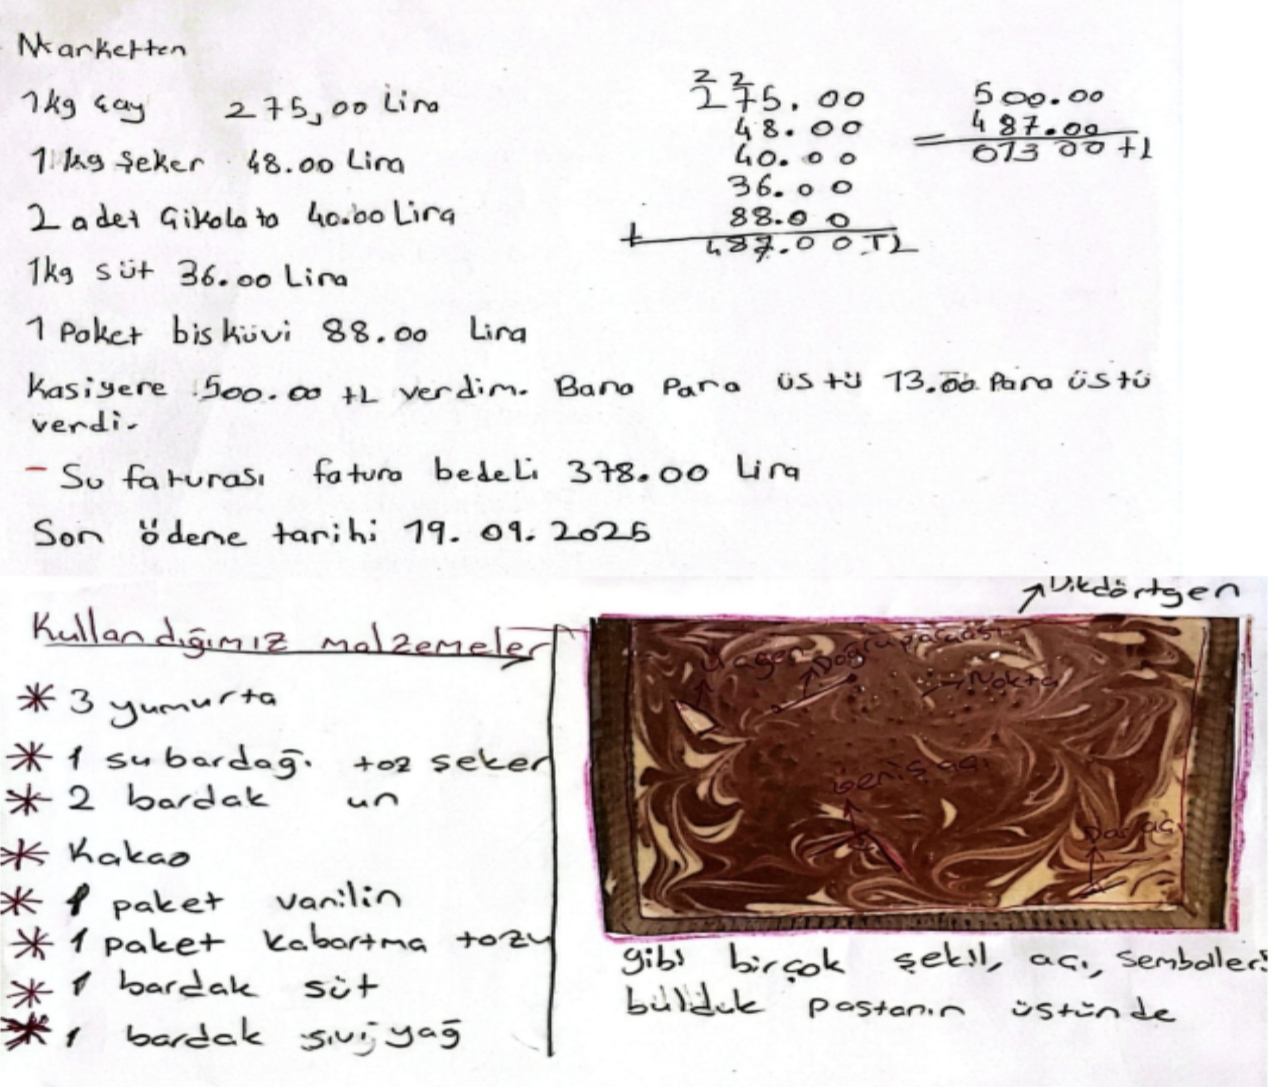 Marketten
1kg çay 275,00 Lira
1 kg şeker 48.00 Lira
2 adet Çikolata 40.00 Lira
1kg süt 36.00 Lira
1 Paket bisküvi 88.00 Lira
Kasiyere 500.00 tL verdim. Bana Para üstü 13.00 Para üstü
verdi.
2 2
275.00
48.00
40.00
36.00
88.00
+
487.00 TL
500.00
487.00
-
013 00 tL
- Su faturası fatura bedeli 378.00 Lira
Son ödeme tarihi 19. 09. 2025
Kullandığımız malzemeler
* 3 yumurta
* 1 su bardağı toz şeker
* 2 bardak un
* Kakao
* 1 paket vanilin
* 1 paket kabartma tozu
* 1 bardak süt
* 1 bardak sıvı yağ
Dikdörtgen
Üçgen
Doğru parçası
Nokta
Geniş açı
Dar açı
gibi birçok şekil, açı, semboller
bulduk pastanın üstünde